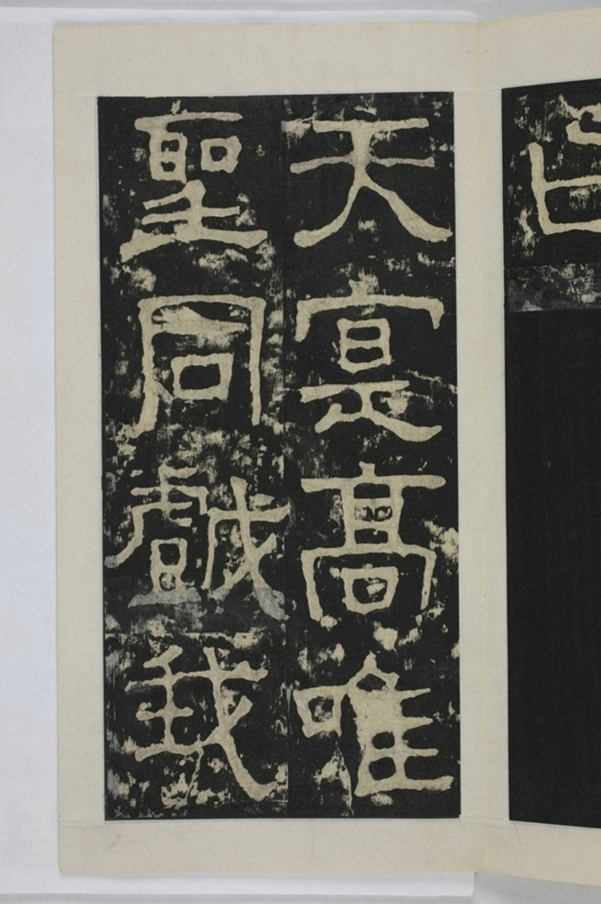 天寔高唯
聖同戲我